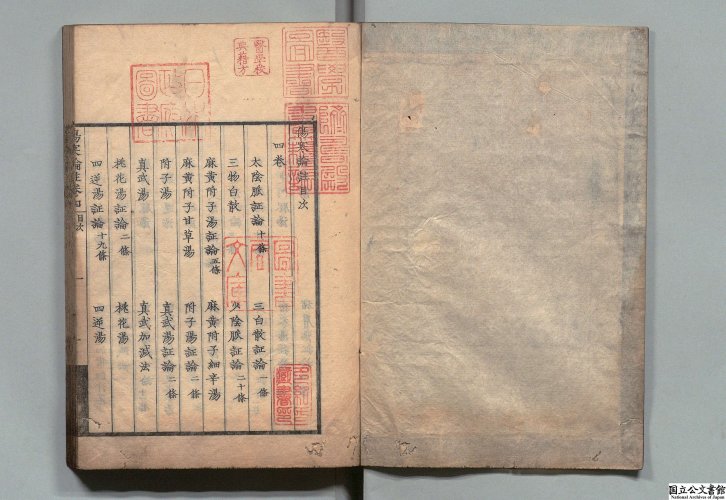 醫學校
日本
政府
圖書
傷寒論註目次
四卷
太陰脈証論十條 三白散証論一條
三物白散 少陰脈証論二十條
麻黃附子湯証論五條 麻黃附子細辛湯
麻黃附子甘草湯 附子湯証論二條
附子湯 真武湯証論二條
真武湯 真武加減法
桃花湯証論二條 桃花湯
四逆湯証論十九條 四逆湯
傷寒論註卷四 目次 一
国立公文書館
National Archives of Japan